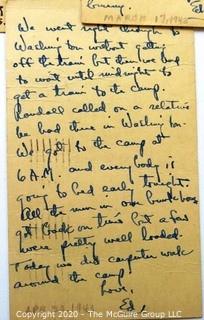 MARCH 17, 1942
Ed
We went right through to
Washington without getting
off the train but then we had
to wait until midnight to
get a train to the camp.
Randall called on a relative
he had there in Washington.
We got to the camp at
6 A.M. and everybody is
going to bed early tonight.
All the men in our
got back on time but a few
were pretty well loaded.
Today we did carpenter work
around the camp.
Love,
Ed.
Copyright 2020 - The McGuire Group, LLC